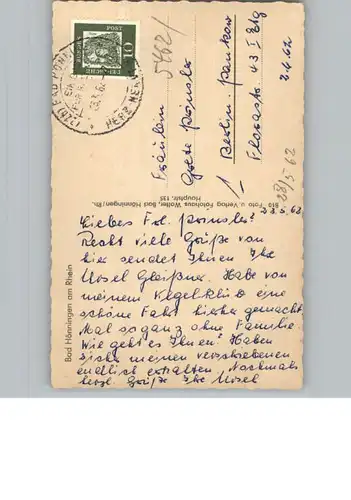 DEUTSCHE
BUNDES
POST
10
BAD HÖNN
HERZ NERV
Fräulein
Grete
1 Berlin Pankow
Florastr. 43 I Etg
2.4.62
5462/
28/5 62
Foto u. Verlag Fotohaus Wolter, Bad Hönningen/Rh.
Hauptstr. 135
Bad Hönningen am Rhein
23.3.62
Liebes Frl.
Recht viele Grüße von
hier sendet Ihnen Ihre
Ursel Gleißner. Habe von
meinem Kegelklub eine
schöne Fahrt hierher gemacht
Mal so ganz ohne Familie.
Wie geht es Ihnen? Haben
Sie meinen verschobenen
endlich erhalten Nochmals
herzl. Grüße Ihre Ursel